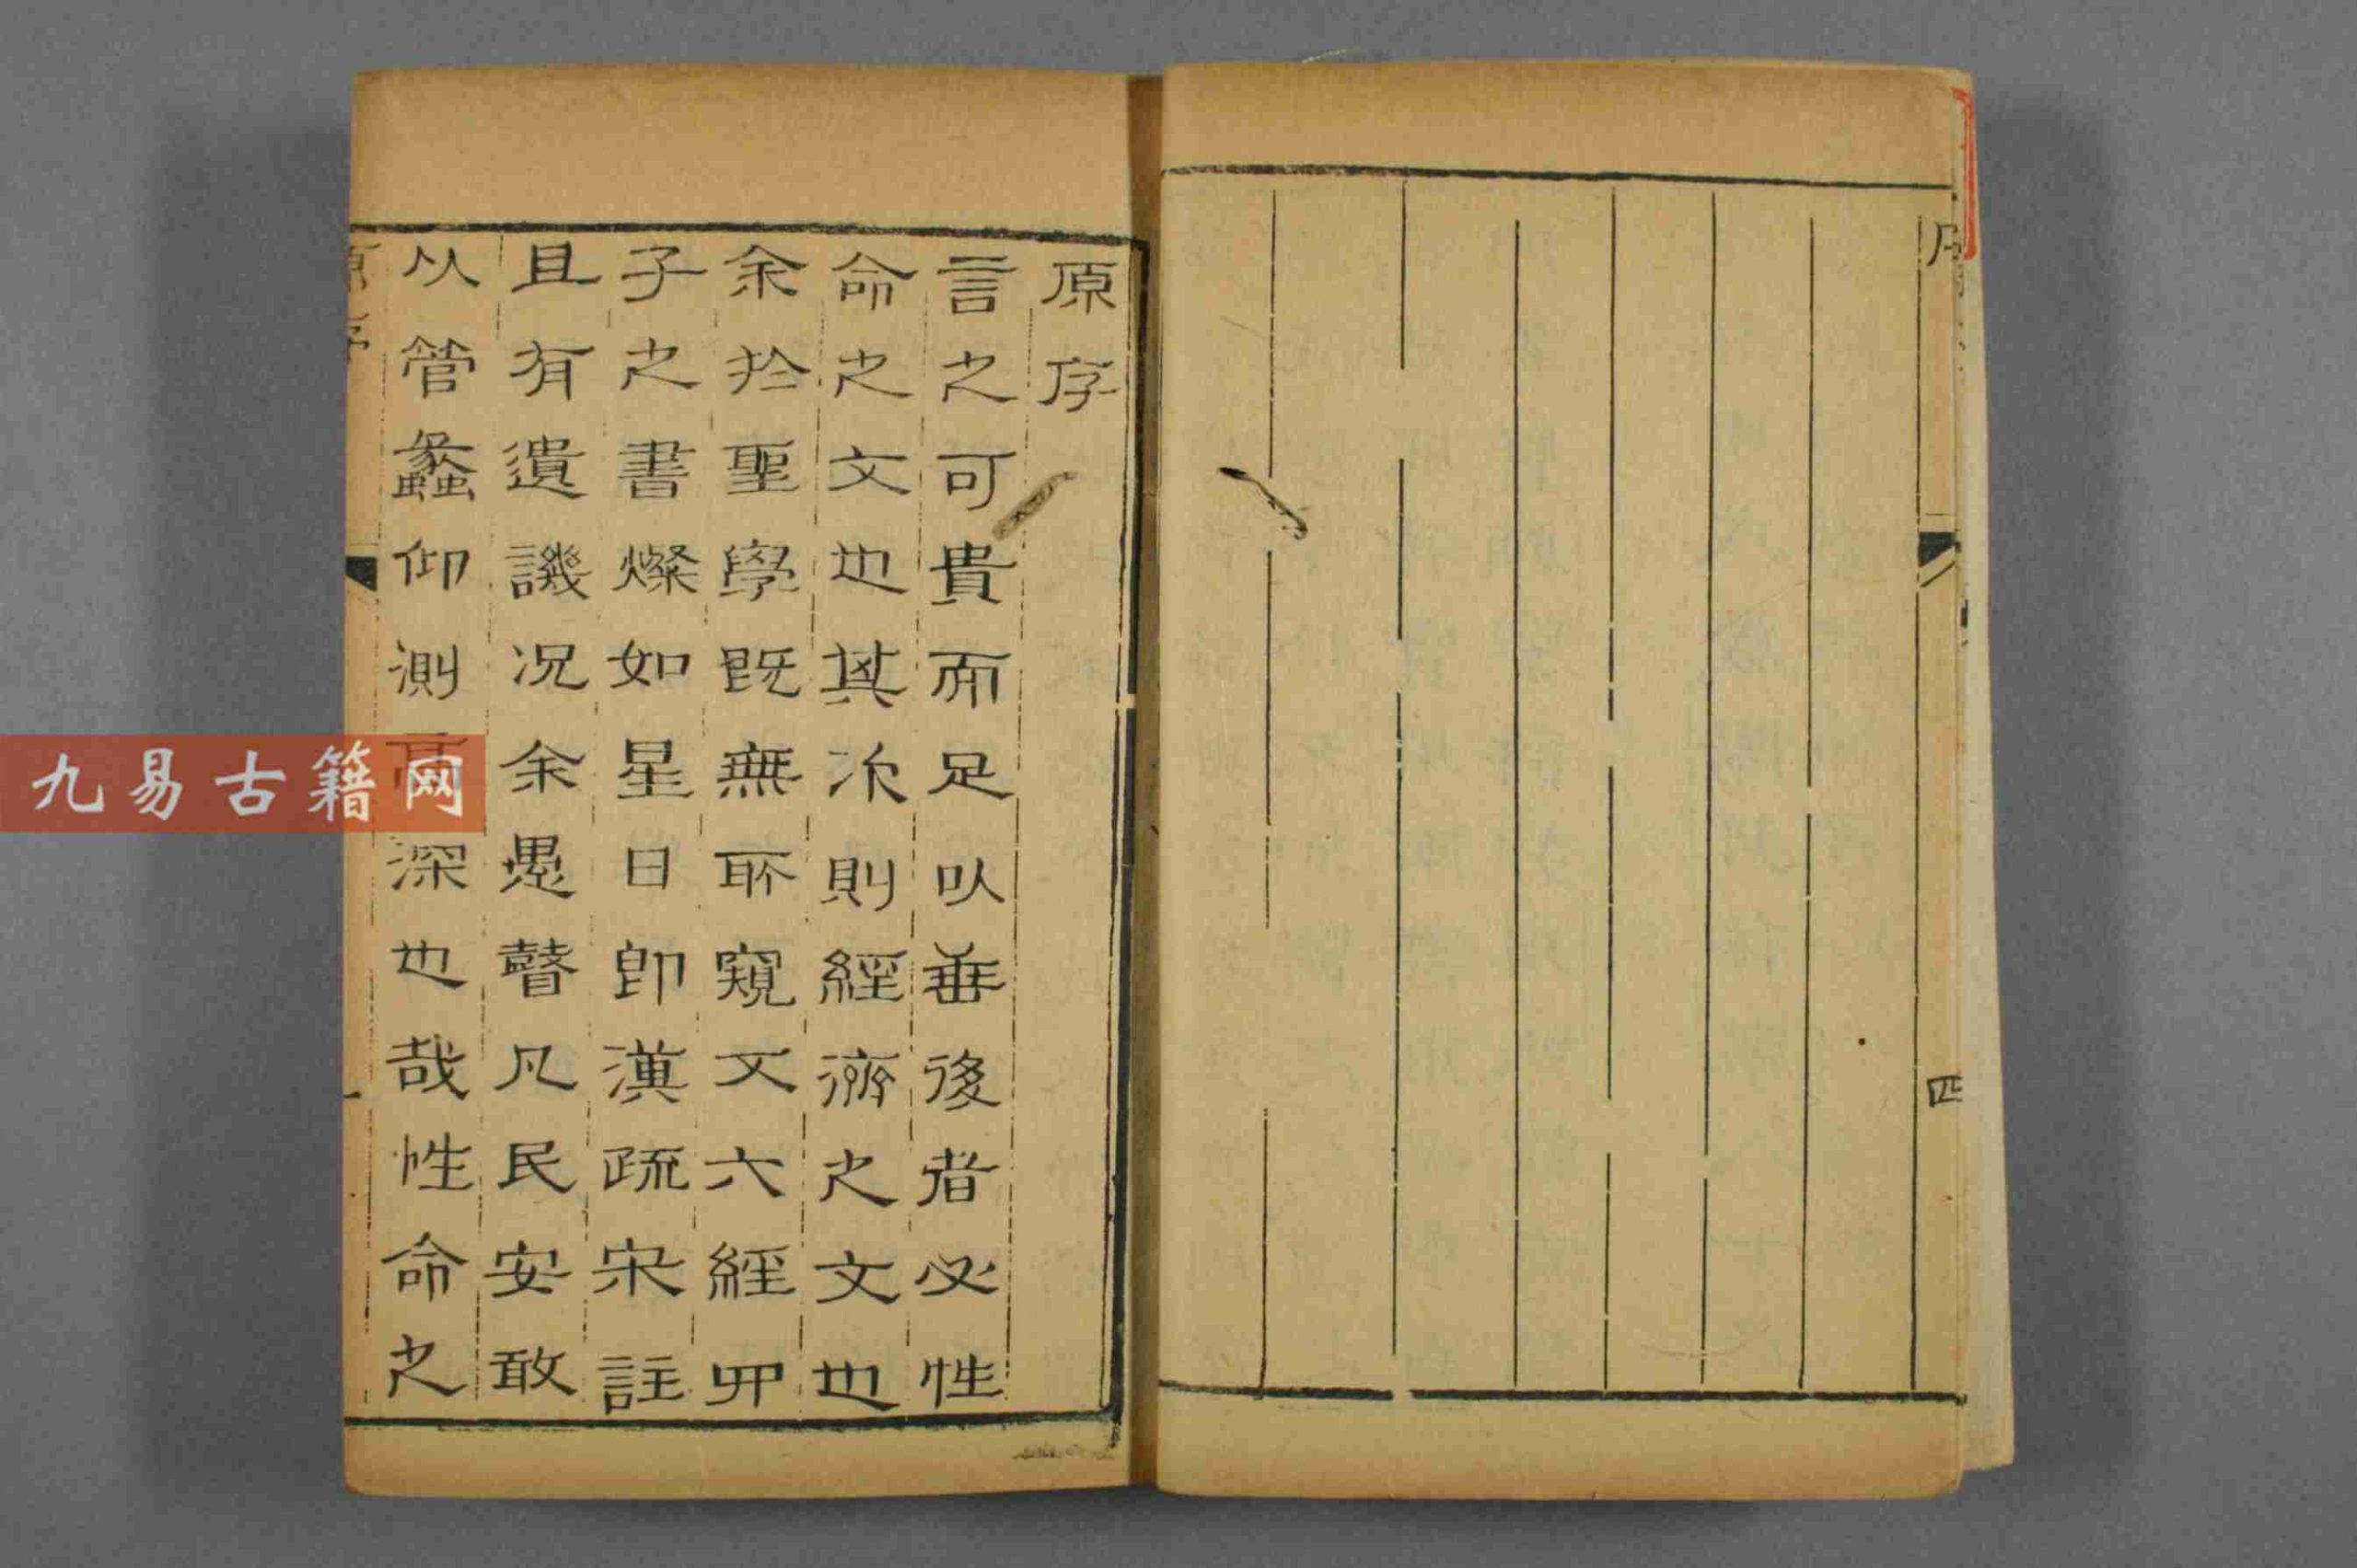 序
四
原序
言之可貴而足以垂後者必性
命之文也其次則經濟之文也
余於聖學既無所窺文六經四
子之書燦如星日即漢疏宋註
且有遺譏况余愚瞽凡民安敢
以管蠡仰測高深也哉性命之
原序
一
九易古籍网